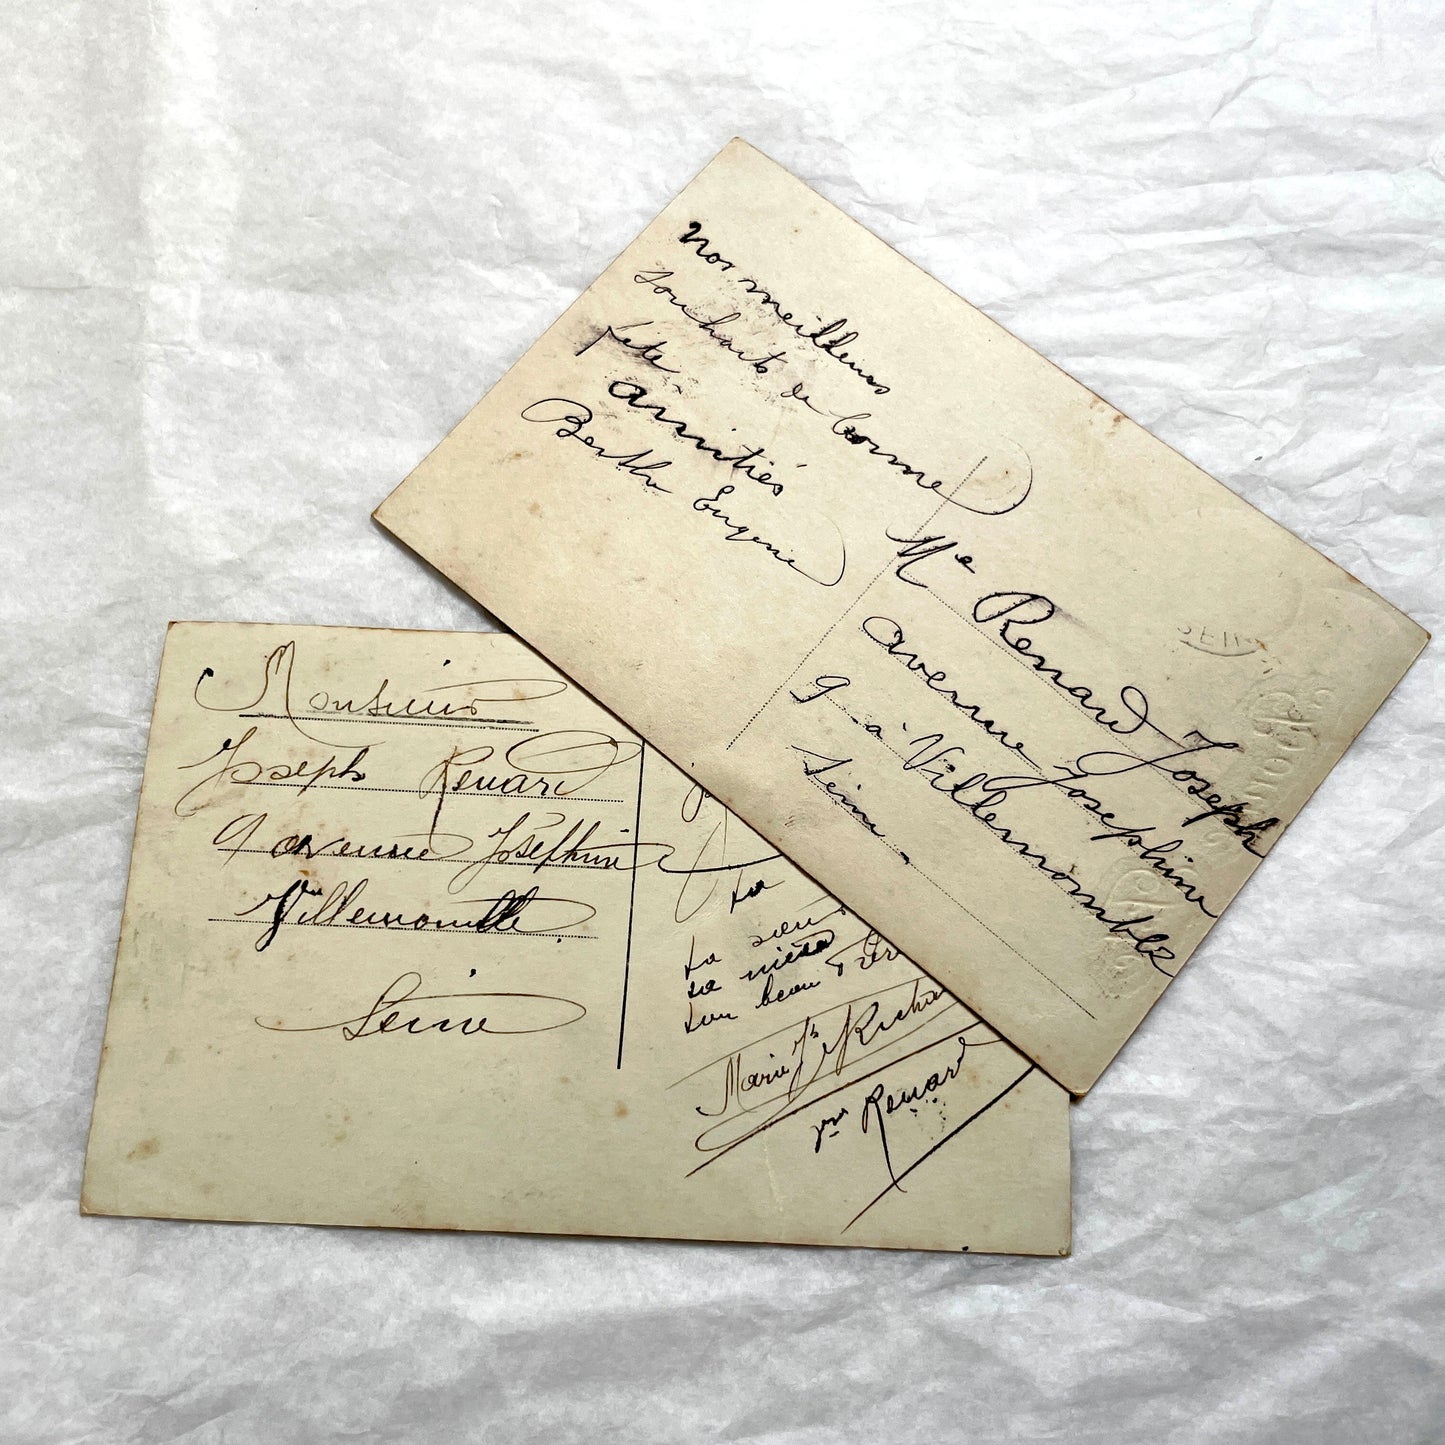 nos meilleurs
souhaits de bonne
fête
amitiés
Berthe Eugenie
Me Renard Joseph
avenue Josephine
9 a Villemomble
Seine
Monsieur
Joseph Renard
9 avenue Joséphine
Villemomble
Seine
ta
ta sœur
ta nièce
ton beau Frère
Marie
Renard